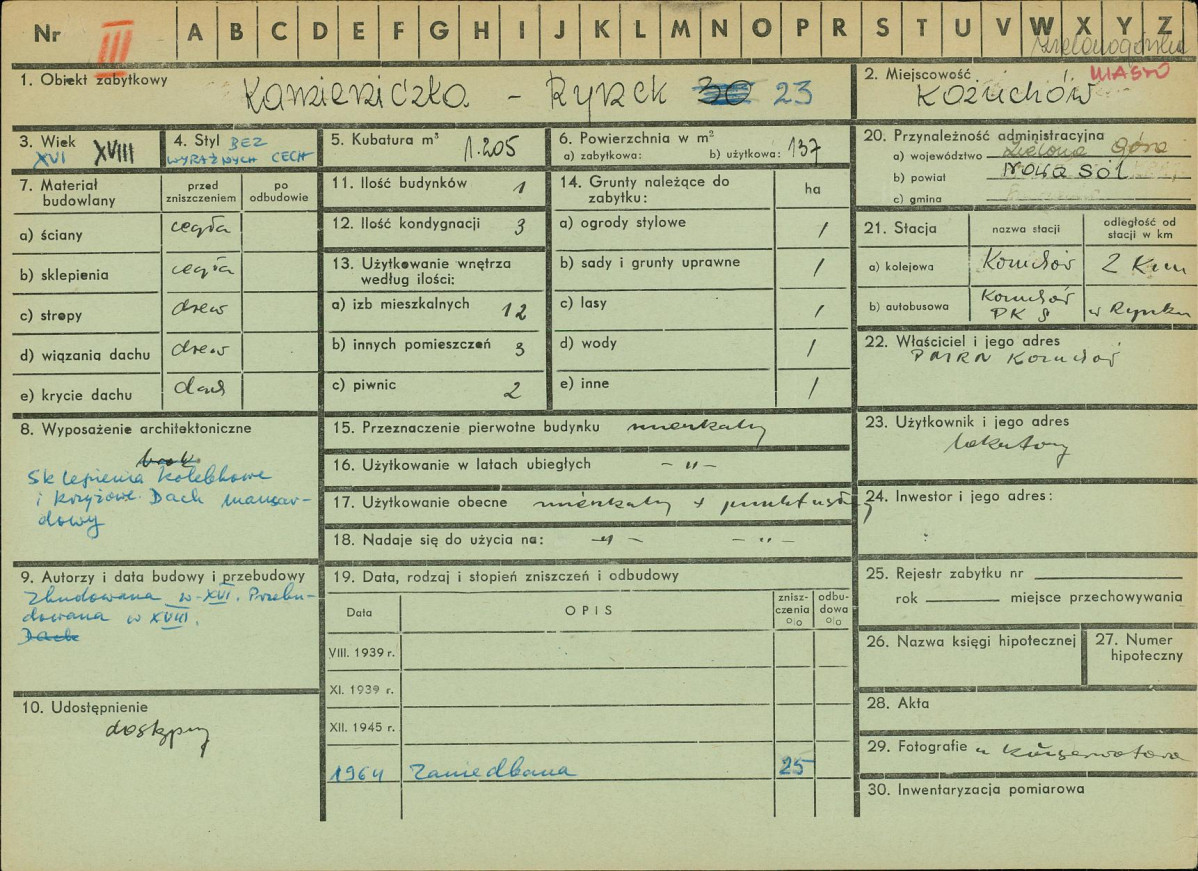 Nr III A B C D E F G H I J K L M N O P R S T U V W X Y Z
1. Obiekt zabytkowy Kamieniczka - Rynek 30 23
2. Miejscowość MIASTO
Kożuchów
3. Wiek
XVI XVIII
4. Styl BEZ
WYRAŹNYCH CECH
5. Kubatura m³ 1.205
6. Powierzchnia w m²
a) zabytkowa: b) użytkowa: 137
7. Materiał budowlany
przed zniszczeniem
po odbudowie
a) ściany cegła
b) sklepienia cegła
c) stropy drew
d) wiązania dachu drew
e) krycie dachu dach
8. Wyposażenie architektoniczne
Sklepienia kolebkowe
i krzyżowe. Dach mansar-
dowy
9. Autorzy i data budowy i przebudowy
Zbudowana w XVI. Przebu-
dowana w XVIII.
Dach
10. Udostępnienie
dostępny
11. Ilość budynków 1
12. Ilość kondygnacji 3
13. Użytkowanie wnętrza
według ilości:
a) izb mieszkalnych 12
b) innych pomieszczeń 3
c) piwnic 2
14. Grunty należące do
zabytku:
ha
a) ogrody stylowe /
b) sady i grunty uprawne /
c) lasy /
d) wody /
e) inne /
15. Przeznaczenie pierwotne budynku mieszkalny
16. Użytkowanie w latach ubiegłych - " -
17. Użytkowanie obecne mieszkalny + punkt usług
18. Nadaje się do użycia na: - " - - " -
19. Data, rodzaj i stopień zniszczeń i odbudowy
Data OPIS
znisz-
czenia
%
odbu-
dowa
%
VIII. 1939 r.
XI. 1939 r.
XII. 1945 r.
1964 Zaniedbana 25
20. Przynależność administracyjna
a) województwo Zielona Góra
b) powiat Nowa Sól
c) gmina
21. Stacja
nazwa stacji
odległość od
stacji w km
a) kolejowa Kożuchów 2 Km
b) autobusowa Kożuchów
PKS w Rynku
22. Właściciel i jego adres
PMRN Kożuchów
23. Użytkownik i jego adres
lokatorzy
24. Inwestor i jego adres:
25. Rejestr zabytku nr
rok miejsce przechowywania
26. Nazwa księgi hipotecznej
27. Numer
hipoteczny
28. Akta
29. Fotografie u Konserwatora
30. Inwentaryzacja pomiarowa